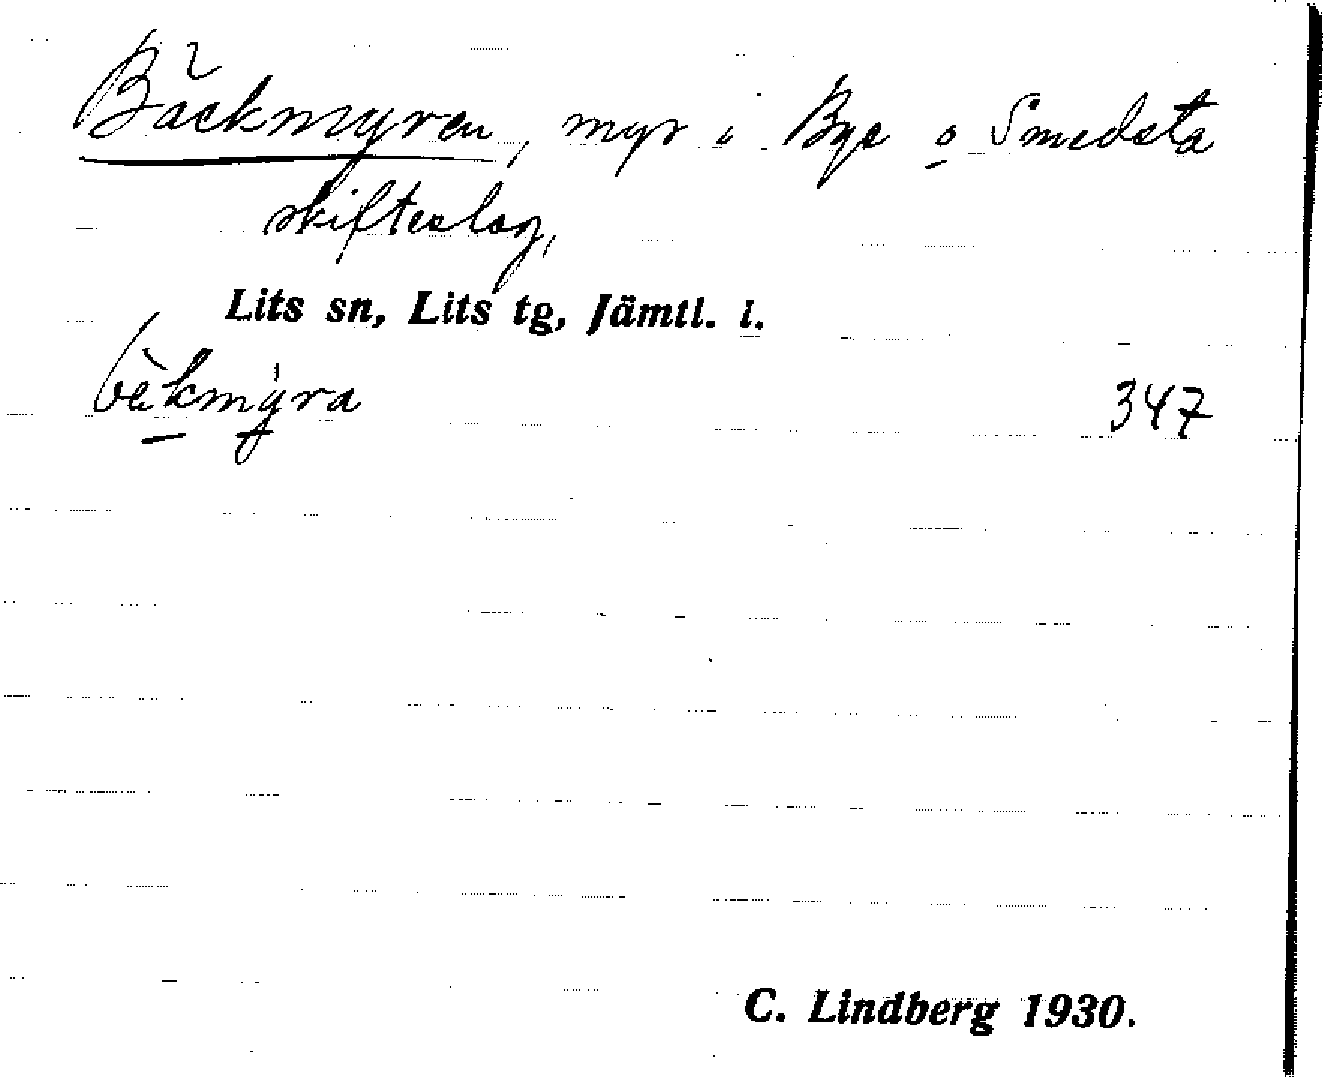 Bäckmyren, myr i Bye o Smedsta
skifteslag,
Lits sn, Lits tg, Jämtl. l.
bèkmýra 347
C. Lindberg 1930.